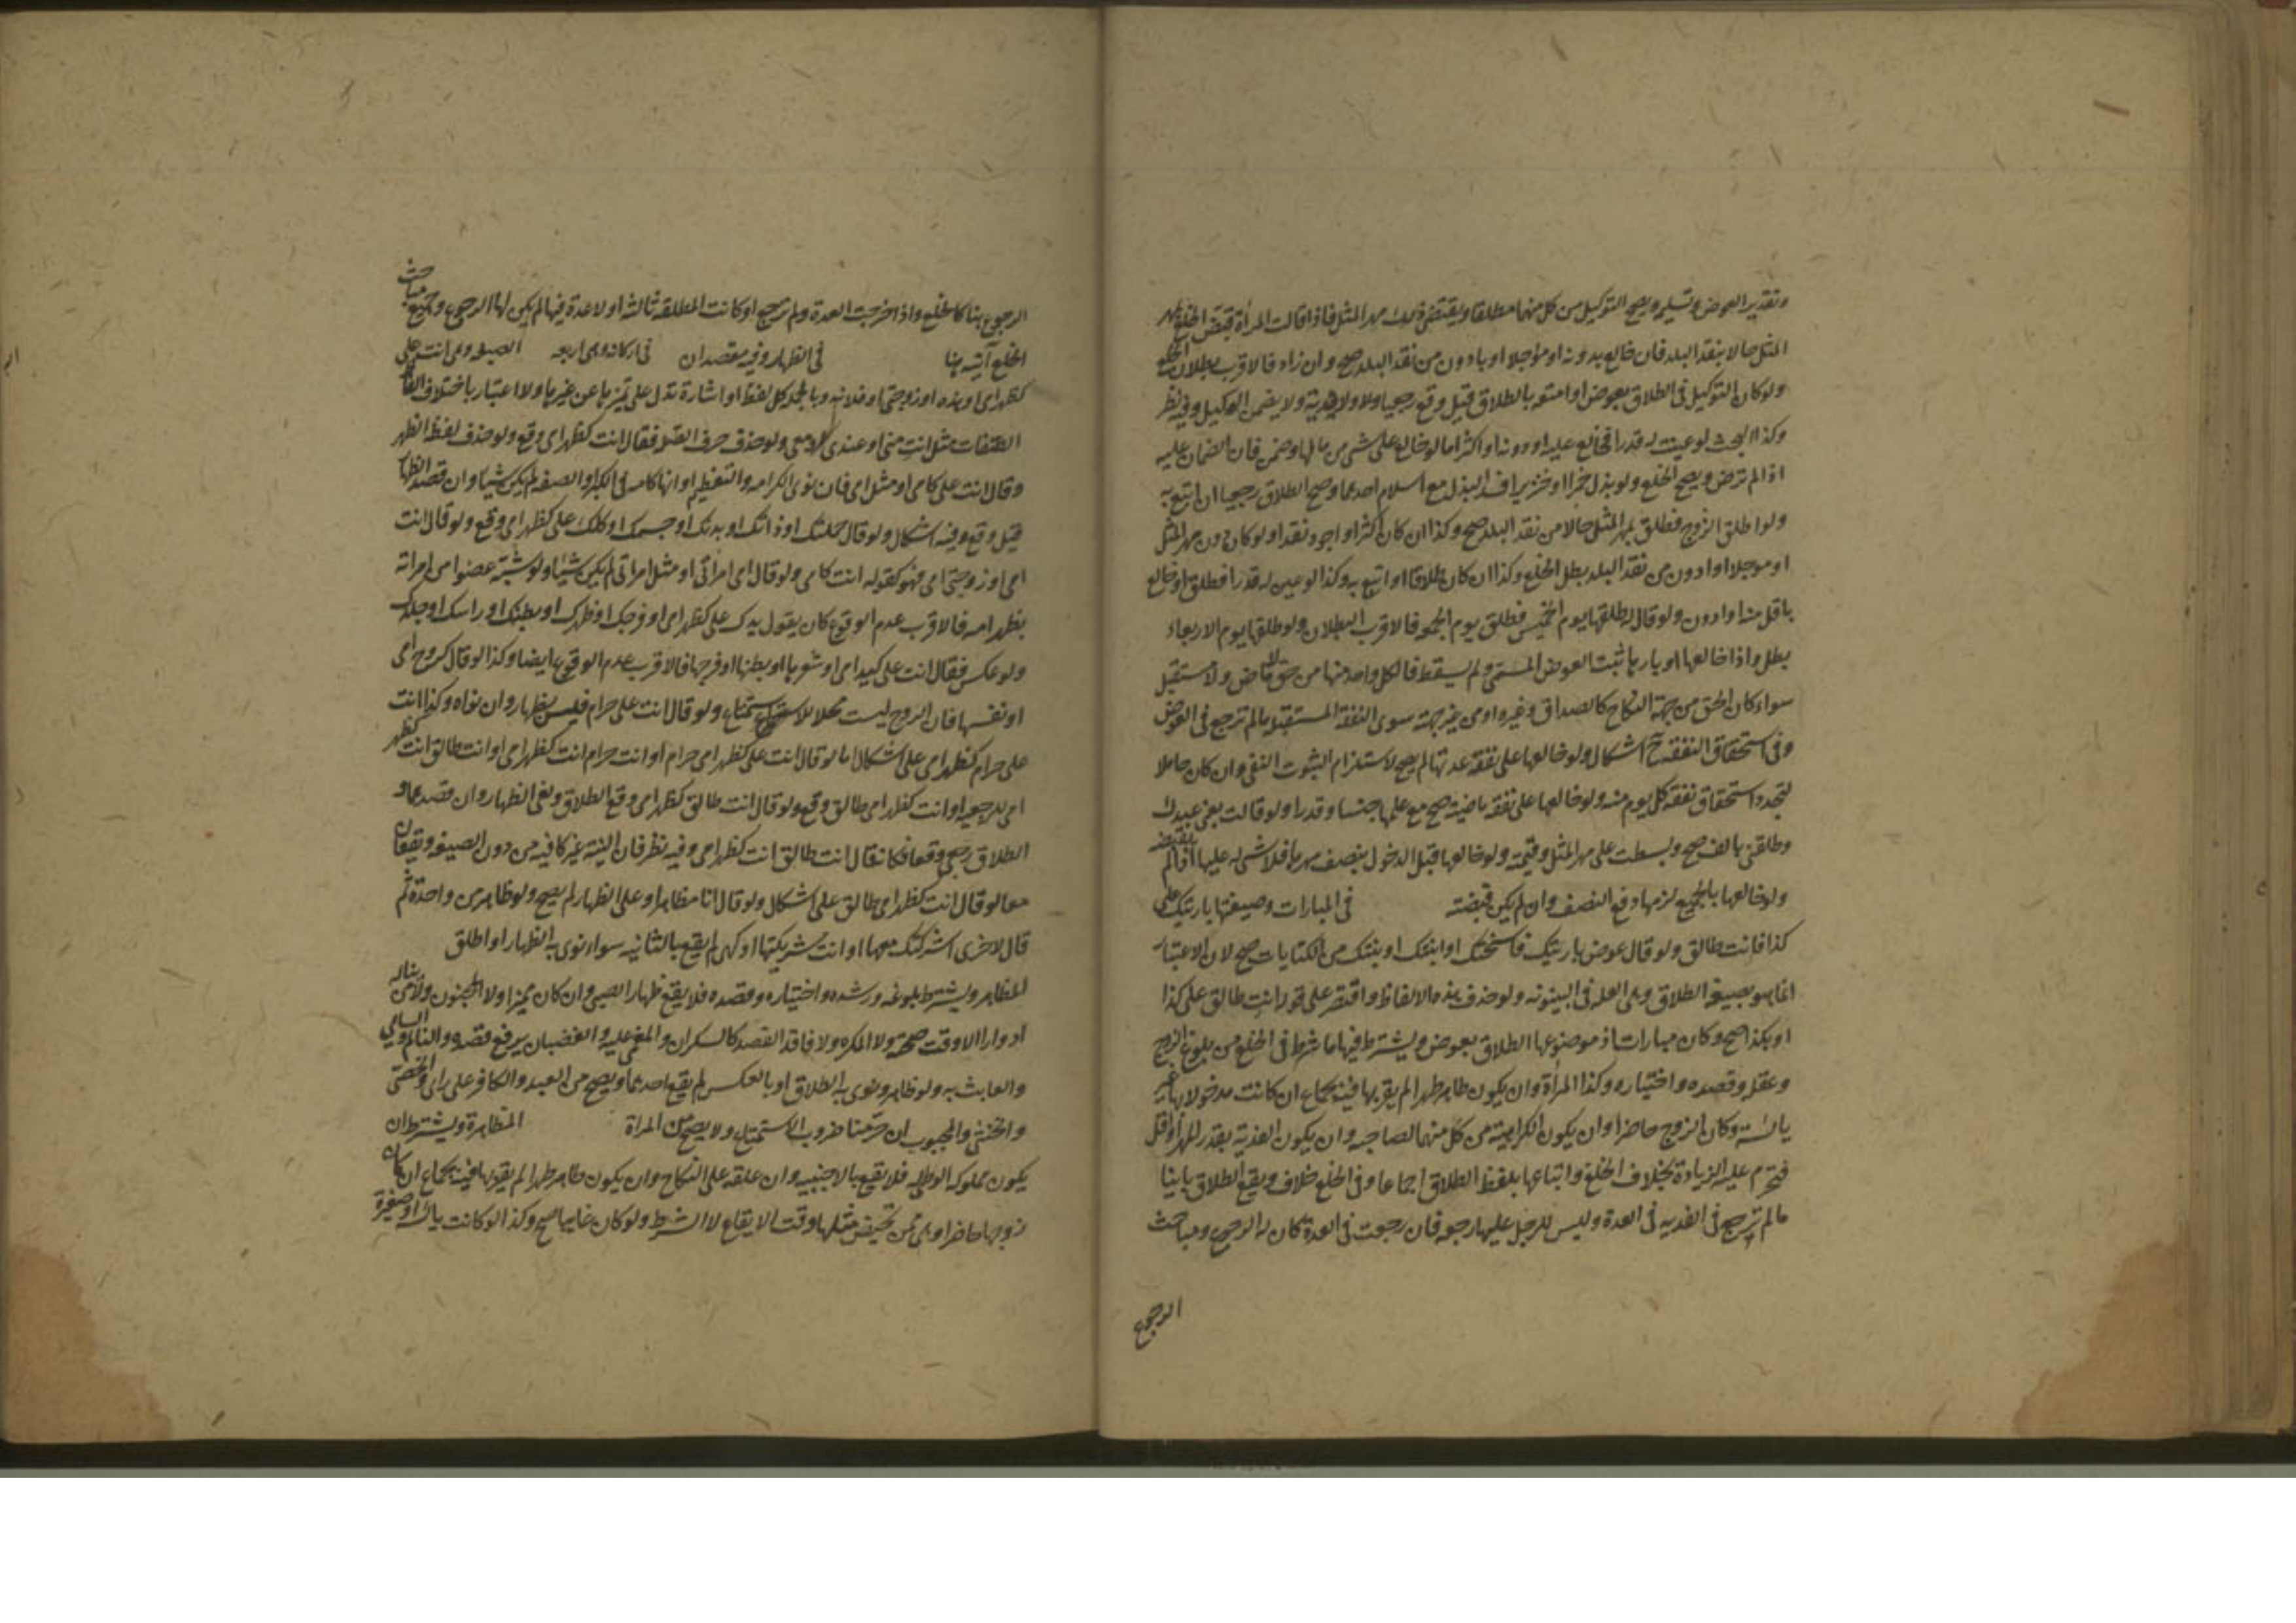 وتقدير العوض وتسليمه ويصح التوكيل من كل منهما مطلقا ويقتضي ذلك مهر المثل فاذا قالت المرأة قبض الخلع بمهر
المثل حالا بنقد البلد فان خالع بدونه او مؤجلا او بادون من نقد البلد صح وان زاد فالاقرب بطلان الخلع
ولو كان التوكيل في الطلاق بعوض او امتعه بالطلاق قيل وقع رجعيا ولا ولا فدية ولا يضمن الوكيل وفيه نظر
وكذا البحث لو عينت له قدرا فخالع عليه او دونه او اكثر اما لو خالع على شي من مالها وضمن فان الضمان عليه
اذا لم ترض ويصح الخلع ولو بذل خمرا او خنزيرا فسد البذل مع اسلام احدهما وصح الطلاق رجعيا ان اتبع به
ولو اطلق الزوج فطلق بمهر المثل حالا من نقد البلد صح وكذا ان كان اكثر او اجود نقدا ولو كان دون مهر المثل
او موجلا او ادون من نقد البلد بطل الخلع وكذا ان كان طلاقا او اتبع به وكذا لو عين له قدرا فطلق او خالع
باقل منه او ادون ولو قال طلقها يوم الخميس فطلق يوم الجمعة فالاقرب البطلان ولو طلقها يوم الاربعاء
بطل واذا خالعها او باراها ثبت العوض المسمى ولم يسقط ما لكل واحد منهما من حق لا ماض ولا مستقبل
سواء كان الحق من جهة النكاح كالصداق وغيره او من غير جهته سوى النفقة المستقبلة ما لم ترجع في العوض
وفي استحقاق النفقة ح اشكال ولو خالعها على نفقة عدتها لم يصح لاستلزام الثبوت النفي وان كان حاملا
لتجدد استحقاق نفقة كل يوم منه ولو خالعها على نفقة ماضية صح مع علمها جنسا وقدرا ولو قالت بعني عبدك
وطلقني بالف صح وبسطت على مهر المثل وقيمته ولو خالعها قبل الدخول بنصف مهرها فلا شي له عليها اذا لم يقبضه
ولو خالعها بالجميع لزمها دفع النصف وان لم يكن قبضته في المبارات وصيغتها بارئتك على
كذا فانت طالق ولو قال عوض بارئتك فاسختك او ابنتك او بنتك من الكنايات صح لان الاعتبار
انما هو بصيغة الطلاق وهي العلة في البينونة ولو حذف هذه الالفاظ واقتصر على قوله انت طالق على كذا
او بكذا صح وكان مبارات اذ موضوعها الطلاق بعوض ويشترط فيها ما شرط في الخلع من بلوغ الزوج
وعقله وقصده واختياره وكذا المرأة وان يكون طاهر طهرا لم يقربها فيه بجماع ان كانت مدخولا بها غير
يائسة وكان الزوج حاضرا وان يكون الكراهية من كل منهما لصاحبه وان يكون الفدية بقدر المهر او اقل
فتحرم عليه الزيادة بخلاف الخلع واتباعها بلفظ الطلاق اجماعا وفي الخلع خلاف ويقع الطلاق باينا
ما لم ترجع في الفدية في العدة وليس للرجل عليها رجعة فان رجعت في العدة كان له الرجوع ومباحث
الرجوع
الرجوع هنا كالخلع واذا خرجت العدة ولم ترجع او كانت المطلقة ثالثة او لا عدة فيها لم يكن لها الرجوع وجميع مباحث
الخلع آتية هنا في الظهار وفيه مقصدان في اركانه وهي اربعة الصيغة وهي انت علي
كظهر امي او هذه او زوجتي او فلانة وبالجملة كل لفظ او اشارة تدل على تميزها عن غيرها ولا اعتبار باختلاف الفاظ
الصفات مثل انت مني او عندي او معي ولو حذف حرف الصلة فقال انت كظهر امي وقع ولو حذف لفظة الظهر
وقال انت علي كامي او مثل امي فان نوى الكرامة والتعظيم او انها كامه في الكبر او الصفة لم يكن شيئا وان قصد الظهار
قيل وقع وفيه اشكال ولو قال جملتك او ذاتك او بدنك او جسمك او كلك علي كظهر امي وقع ولو قال انت
امي او زوجتي امي فهو كقوله انت كامي ولو قال امي امرأتي او مثل امرأتي لم يكن شيئا ولو شبه عضوا من امراته
بظهر امه فالاقرب عدم الوقوع كان يقول يدك علي كظهر امي او فرجك او ظهرك او بطنك او راسك او جلدك
ولو عكس فقال انت علي كيد امي او شعرها او بطنها او فرجها فالاقرب عدم الوقوع ايضا وكذا لو قال كروح امي
او نفسها فان الروح ليست محلا للاستمتاع ولو قال انت علي حرام فليس بظهار وان نواه وكذا انت
علي حرام كظهر امي على اشكال اما لو قال انت علي كظهر امي حرام او انت حرام انت كظهر امي او انت طالق انت كظهر
امي للرجعية او انت كظهر امي طالق وقع ولو قال انت طالق كظهر امي وقع الطلاق ولغى الظهار وان قصدهما و
الطلاق رجعي وقعا فكانه قال انت طالق انت كظهر امي وفيه نظر فان النية غير كافية من دون الصيغة ويقعان
معا لو قال انت كظهر امي طالق على اشكال ولو قال انا مظاهر او علي الظهار لم يصح ولو ظاهر من واحدة ثم
قال لاخرى اشركتك معها او انت شريكتها او كهي لم يقع بالثانية سواء نوى به الظهار او اطلق
المظاهر ويشترط بلوغه ورشده واختياره وقصده فلا يقع ظهار الصبي وان كان مميزا ولا المجنون ولا من يناله
ادوارا الا وقت صحته ولا المكره ولا فاقد القصد كالسكران والمغمى عليه والغضبان يرفع قصده والنائم والساهي
والعابث به ولو ظاهر ونوى به الطلاق او بالعكس لم يقع احدهما ويصح من العبد والكافر على راي والخصي
والخنثى والمجبوب ان حرمنا ضروب الاستمتاع ولا يصح من المراة المظاهرة ويشترط ان
يكون مملوكة الوطي فلا يقع بالاجنبية وان علقه على النكاح وان يكون طاهر طهرا لم يقربها فيه بجماع ان كان
زوجها حاضرا وهي ممن تحيض مثلها وقت الايقاع لا الشرط ولو كان غايبا صح وكذا لو كانت يائسة او صغيرة